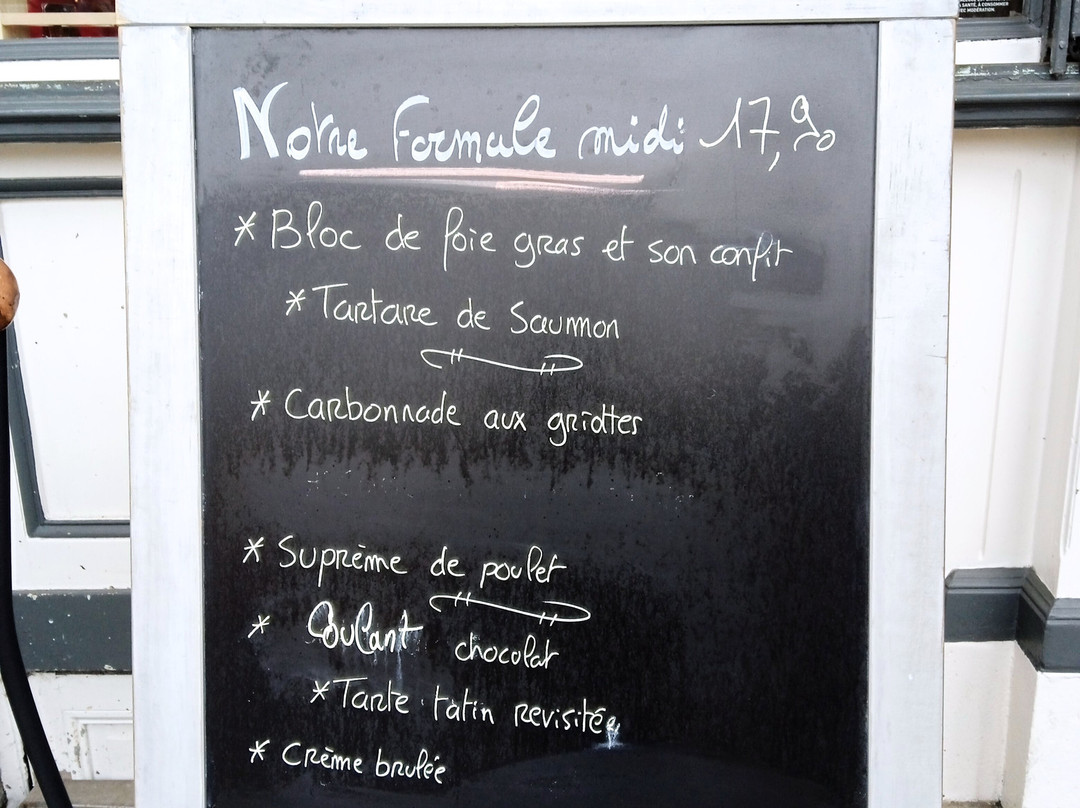 Notre Formule midi 17,90
* Bloc de foie gras et son confit
* Tartare de Saumon
* Carbonnade aux griottes
* Suprème de poulet
* Coulant chocolat
* Tarte tatin revisitée
* Crème brulée
SANTÉ, À CONSOMMER